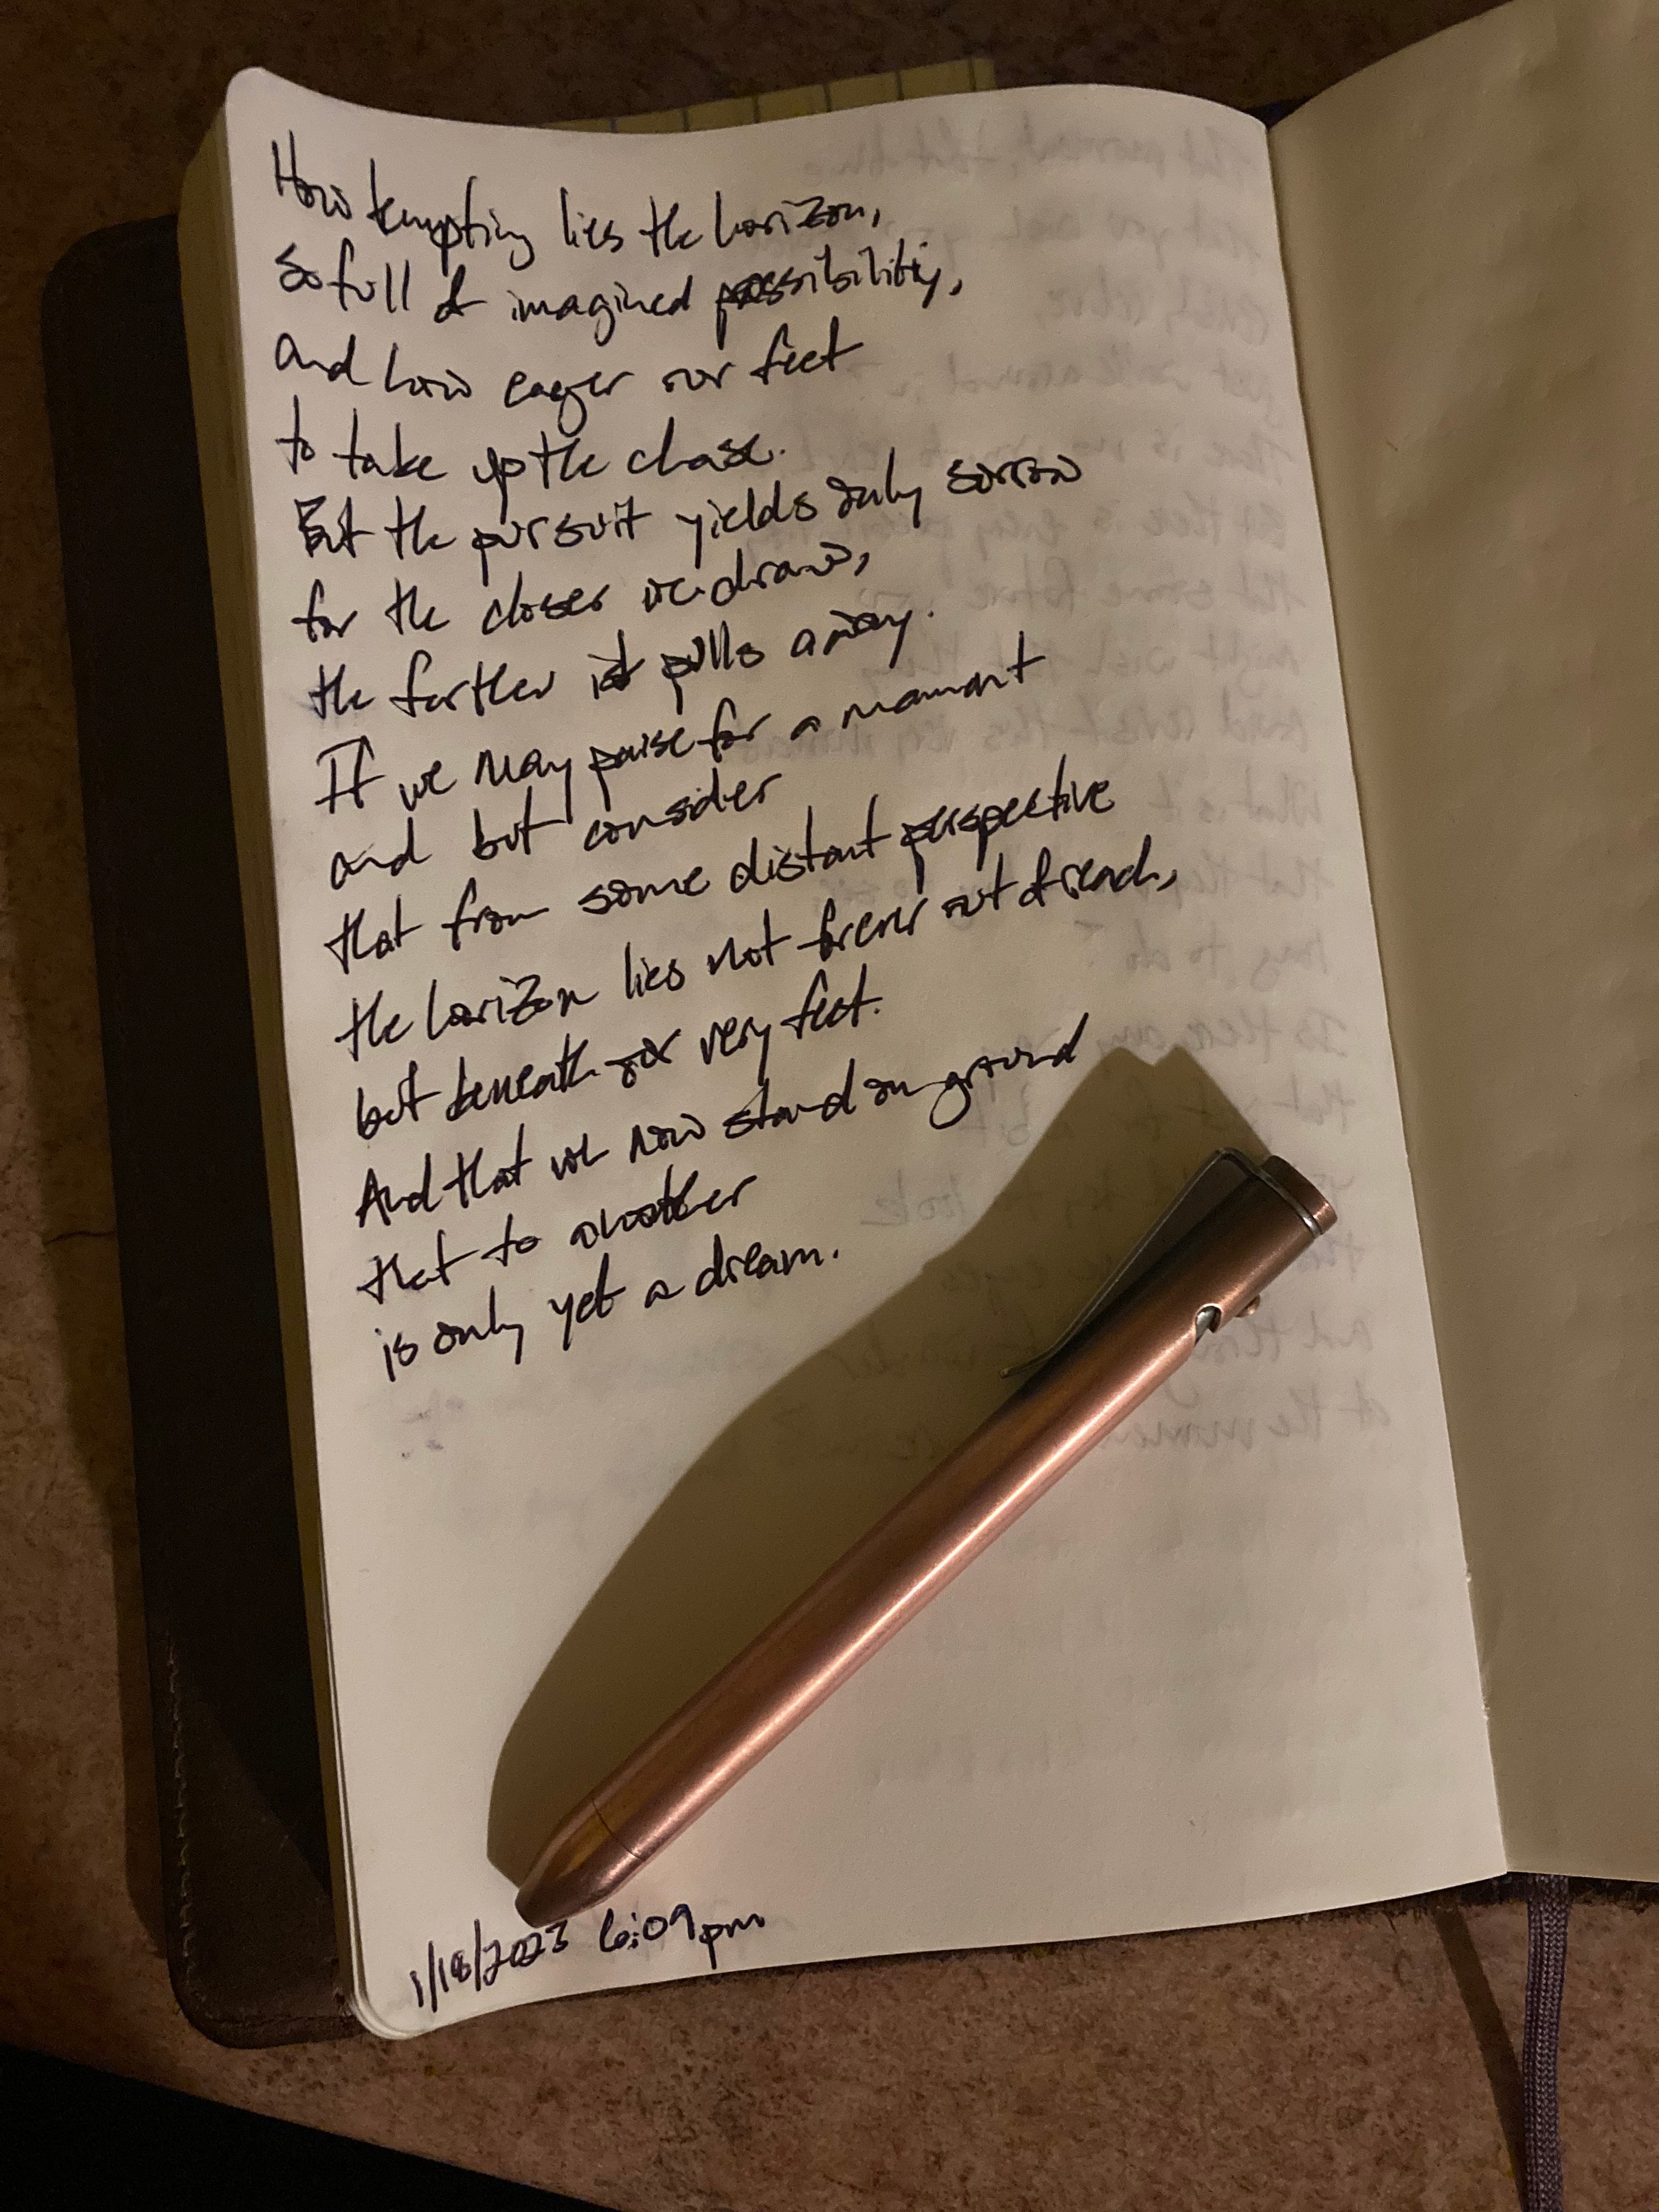 How tempting lies the horizon,
so full of imagined possibility,
and how eager our feet
to take up the chase.
But the pursuit yields only sorrow
for the closer we draw,
the farther it pulls away.
If we may pause for a moment
and but consider
that from some distant perspective
the horizon lies not forever out of reach,
but beneath our very feet.
And that we now stand on ground
that to another
is only yet a dream.
1/18/2023 6:09pm